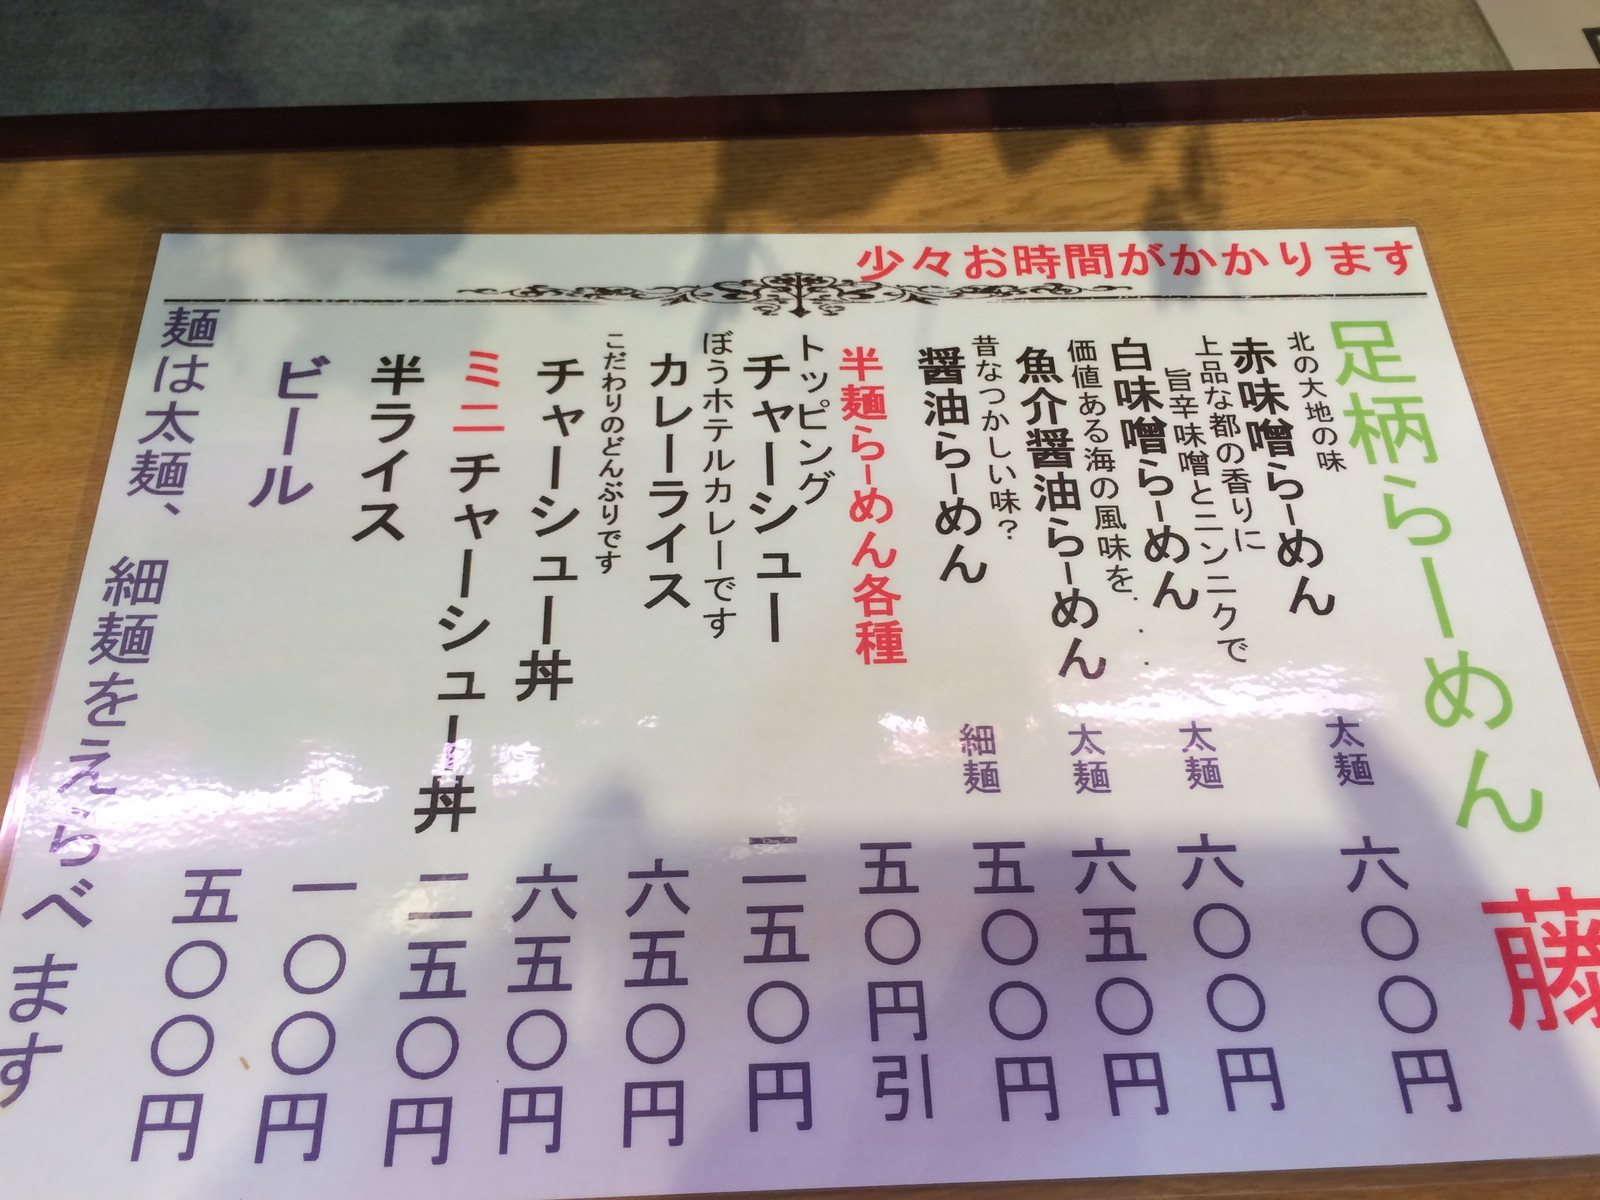 少々お時間がかかります
足柄らーめん 藤
北の大地の味
赤味噌らーめん 太麺 六〇〇円
上品な都の香りに
旨辛味噌とニンニクで
白味噌らーめん 太麺 六〇〇円
価値ある海の風味を...
魚介醤油らーめん 太麺 六五〇円
昔なつかしい味?
醤油らーめん 細麺 五〇〇円
半麺らーめん各種 五〇円引
トッピング
チャーシュー 三五〇円
ぼうホテルカレーです
カレーライス 六五〇円
こだわりのどんぶりです
チャーシュー丼 六五〇円
ミニチャーシュー丼 二五〇円
半ライス 一〇〇円
ビール 五〇〇円
麺は太麺、細麺をえらべます